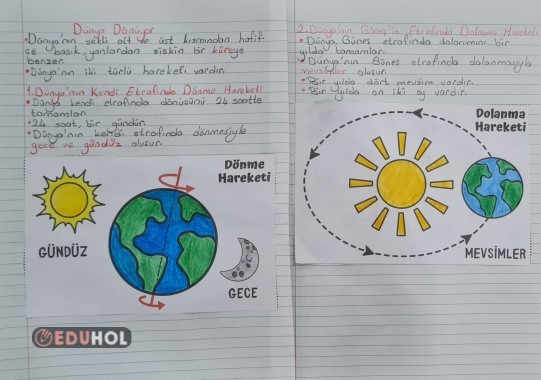 Dünya Dönüyor
•Dünya'nın şekli alt ve üst kısmından hafif-
çe basık, yanlardan şişkin bir küreye
benzer.
•Dünya'nın iki türlü hareketi vardır.
1.Dünya'nın Kendi Etrafında Dönme Hareketi
•Dünya kendi etrafında dönüşünü 24 saatte
tamamlar.
•24 saat, bir gündür.
•Dünya'nın kendi etrafında dönmesiyle
gece ve gündüz oluşur.
Dönme
Hareketi
GÜNDÜZ
GECE
EDUHOL
2.Dünya'nın Güneş'in Etrafında Dolanma Hareketi
•Dünya, Güneş etrafında dolanımını bir
yılda tamamlar.
•Dünya'nın Güneş etrafında dolanmasıyla
mevsimler oluşur.
•Bir yılda dört mevsim vardır.
•Bir yılda on iki ay vardır.
Dolanma
Hareketi
MEVSİMLER